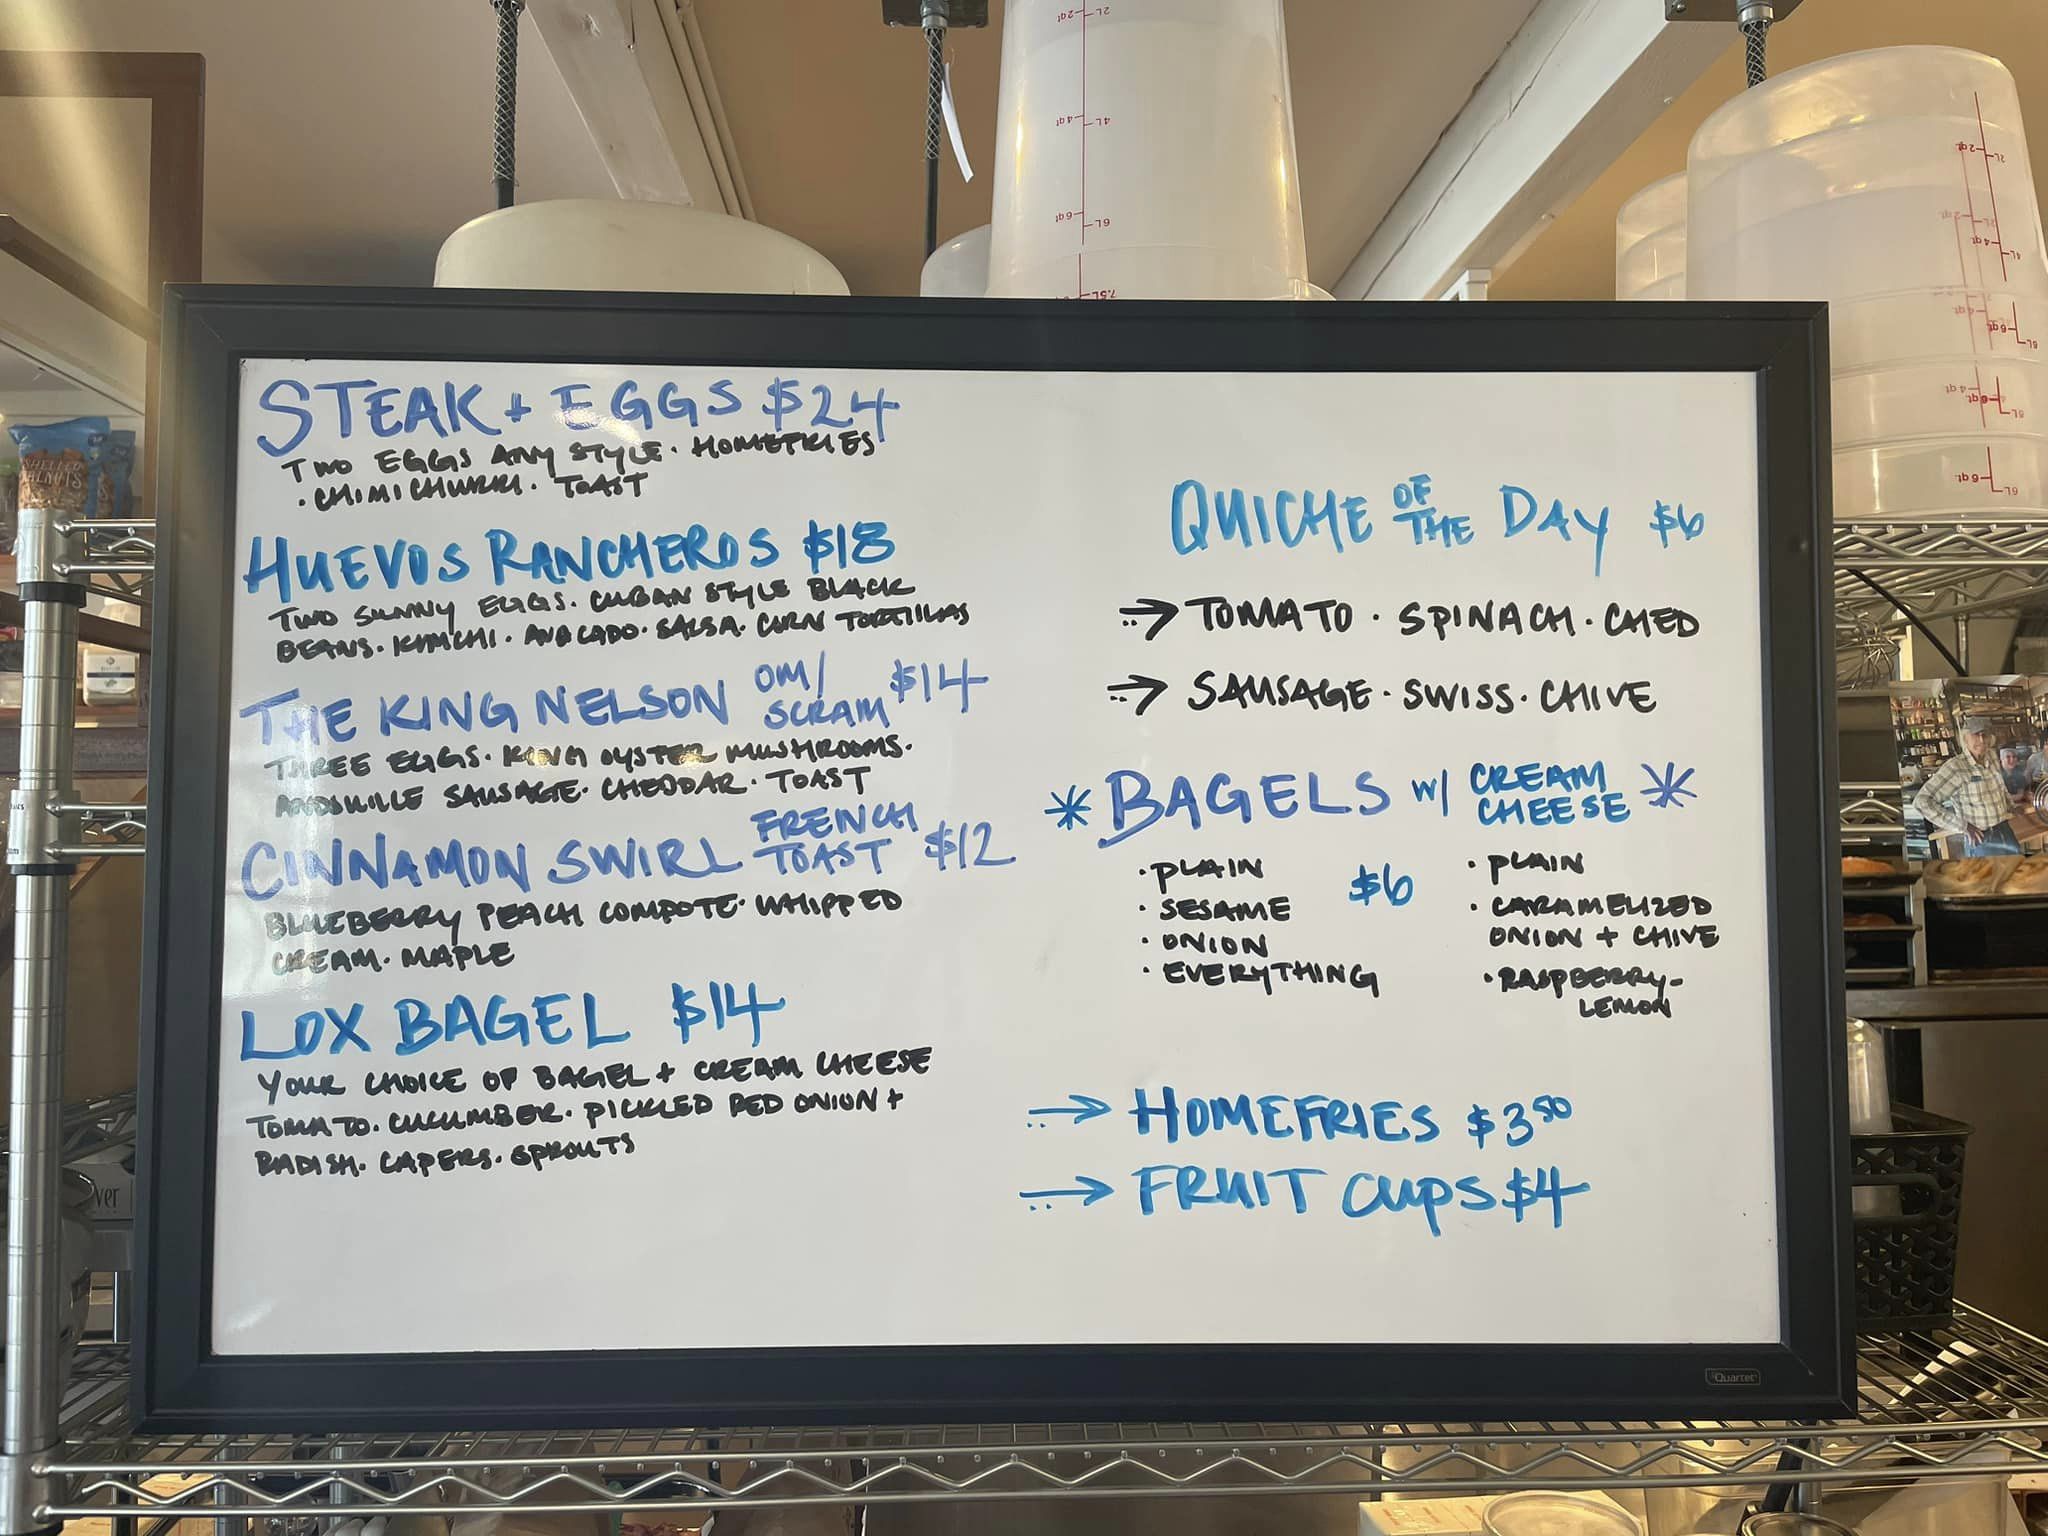 STEAK + EGGS $24
TWO EGGS ANY STYLE · HOMEFRIES
· CHIMICHURRI · TOAST
HUEVOS RANCHEROS $18
TWO SUNNY EGGS · CUBAN STYLE BLACK
BEANS · KIMCHI · AVOCADO · SALSA · CORN TORTILLAS
THE KING NELSON OM/ SCRAM $14
THREE EGGS · KING OYSTER MUSHROOMS ·
SAUSAGE · CHEDDAR · TOAST
CINNAMON SWIRL FRENCH TOAST $12
BLUEBERRY PEACH COMPOTE · WHIPPED
CREAM · MAPLE
LOX BAGEL $14
YOUR CHOICE OF BAGEL + CREAM CHEESE
TOMATO · CUCUMBER · PICKLED RED ONION +
RADISH · CAPERS · SPROUTS
QUICHE OF THE DAY $6
→ TOMATO · SPINACH · CHED
→ SAUSAGE · SWISS · CHIVE
* BAGELS W/ CREAM CHEESE *
$6
· PLAIN
· SESAME
· ONION
· EVERYTHING
· PLAIN
· CARAMELIZED
ONION + CHIVE
· RASPBERRY-
LEMON
→ HOMEFRIES $3.50
→ FRUIT CUPS $4
Quartet
SHELLED
WALNUTS
2qt 2L
4qt 4L
6qt 6L
7.5L
2qt 2L
4qt 4L
6qt 6L
8L
6qt 6L